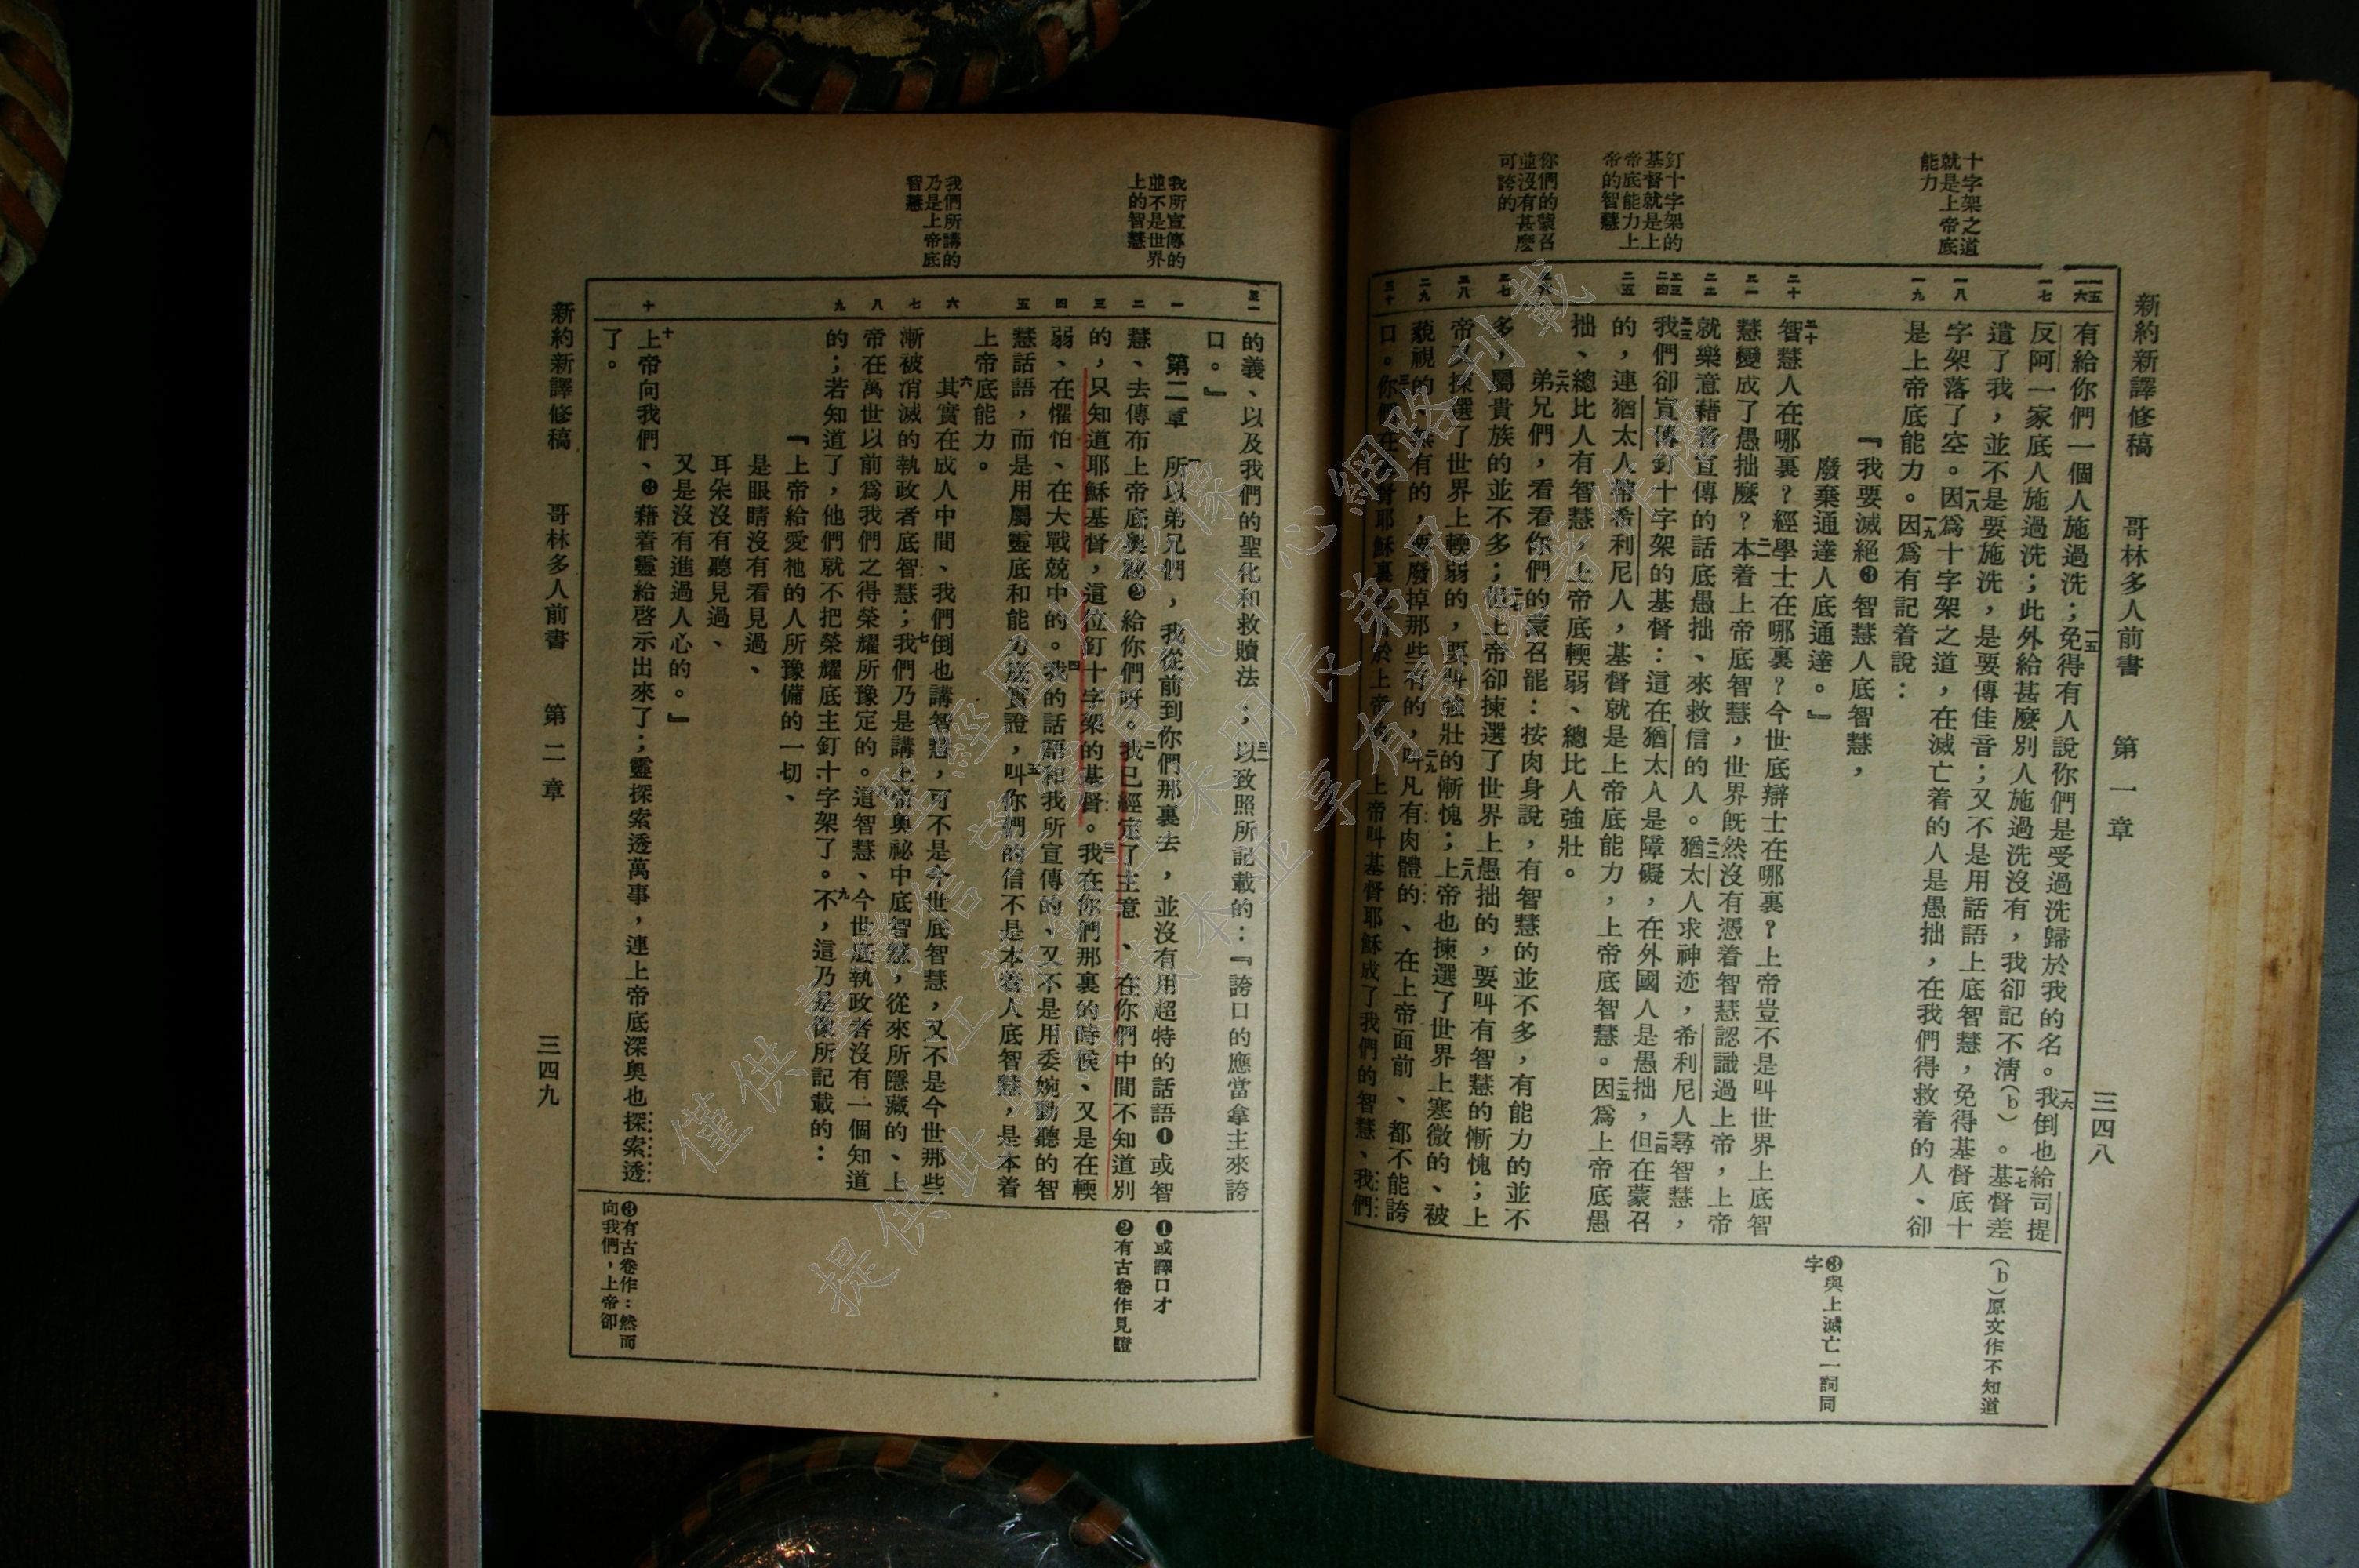 新約新譯修稿　哥林多人前書　第一章　三四八
十字架之道
就是上帝底
能力
釘十字架的
基督就是上
帝底能力上
帝的智慧
你們的蒙召
並沒有甚麼
可誇的
一五
一六
一七
一八
一九
二十
二一
二二
二三
二四
二五
二六
二七
二八
二九
三十
有給你們一個人施過洗；一五免得有人說你們是受過洗歸於我的名。一六我倒也給司提
反阿一家底人施過洗；此外給甚麼別人施過洗沒有，我卻記不清(b)。一七基督差
遣了我，並不是要施洗，是要傳佳音；又不是用話語上底智慧，免得基督底十
字架落了空。一八因爲十字架之道，在滅亡着的人是愚拙，在我們得救着的人、卻
是上帝底能力。一九因爲有記着說：
『我要滅絕❸智慧人底智慧，
廢棄通達人底通達。』
二十智慧人在哪裏？經學士在哪裏？今世底辯士在哪裏？上帝豈不是叫世界上底智
慧變成了愚拙麼？二一本着上帝底智慧，世界旣然沒有憑着智慧認識過上帝，上帝
就樂意藉着宣傳的話底愚拙、來救信的人。二二猶太人求神迹，希利尼人尋智慧，
二三我們卻宣傳釘十字架的基督：這在猶太人是障礙，在外國人是愚拙，二四但在蒙召
的，連猶太人帶希利尼人，基督就是上帝底能力，上帝底智慧。二五因爲上帝底愚
拙、總比人有智慧，上帝底輭弱、總比人強壯。
二六弟兄們，看看你們的蒙召罷：按肉身說，有智慧的並不多，有能力的並不
多，屬貴族的並不多；二七但上帝卻揀選了世界上愚拙的，要叫有智慧的慚愧；上
帝又揀選了世界上輭弱的，要叫強壯的慚愧；二八上帝也揀選了世界上寒微的、被
藐視的、無有的，要廢掉那些有的，二九叫凡有肉體的、在上帝面前、都不能誇
口。三十你們在基督耶穌裏是本於上帝的，上帝叫基督耶穌成了我們的智慧、我們
(b)原文作不知道
❸與上滅亡一詞同
字
我所宣傳的
並不是世界
上的智慧
我們所講的
乃是上帝底
智慧
三一
一
二
三
四
五
六
七
八
九
十
的義、以及我們的聖化和救贖法；三一以致照所記載的：『誇口的應當拿主來誇
口。』
第二章　一所以弟兄們，我從前到你們那裏去，並沒有用超特的話語❶或智
慧、去傳布上帝底奧祕❷給你們呀。二我已經定了主意、在你們中間不知道別
的，只知道耶穌基督，這位釘十字架的基督。三我在你們那裏的時候、又是在輭
弱、在懼怕、在大戰兢中的。四我的話語和我所宣傳的、又不是用委婉動聽的智
慧話語，而是用屬靈底和能力底實證，五叫你們的信不是本着人底智慧，是本着
上帝底能力。
六其實在成人中間、我們倒也講智慧，可不是今世底智慧，又不是今世那些
漸被消滅的執政者底智慧；七我們乃是講上帝奧祕中底智慧，從來所隱藏的、上
帝在萬世以前爲我們之得榮耀所豫定的。八這智慧、今世底執政者沒有一個知道
的；若知道了，他們就不把榮耀底主釘十字架了。九不，這乃是像所記載的：
『上帝給愛祂的人所豫備的一切、
是眼睛沒有看見過、
耳朵沒有聽見過、
又是沒有進過人心的。』
十上帝向我們、❸藉着靈給啓示出來了；靈探索透萬事，連上帝底深奧也探索透
了。
❶或譯口才
❷有古卷作見證
❸有古卷作：然而
向我們，上帝卻
新約新譯修稿　哥林多人前書　第二章　三四九